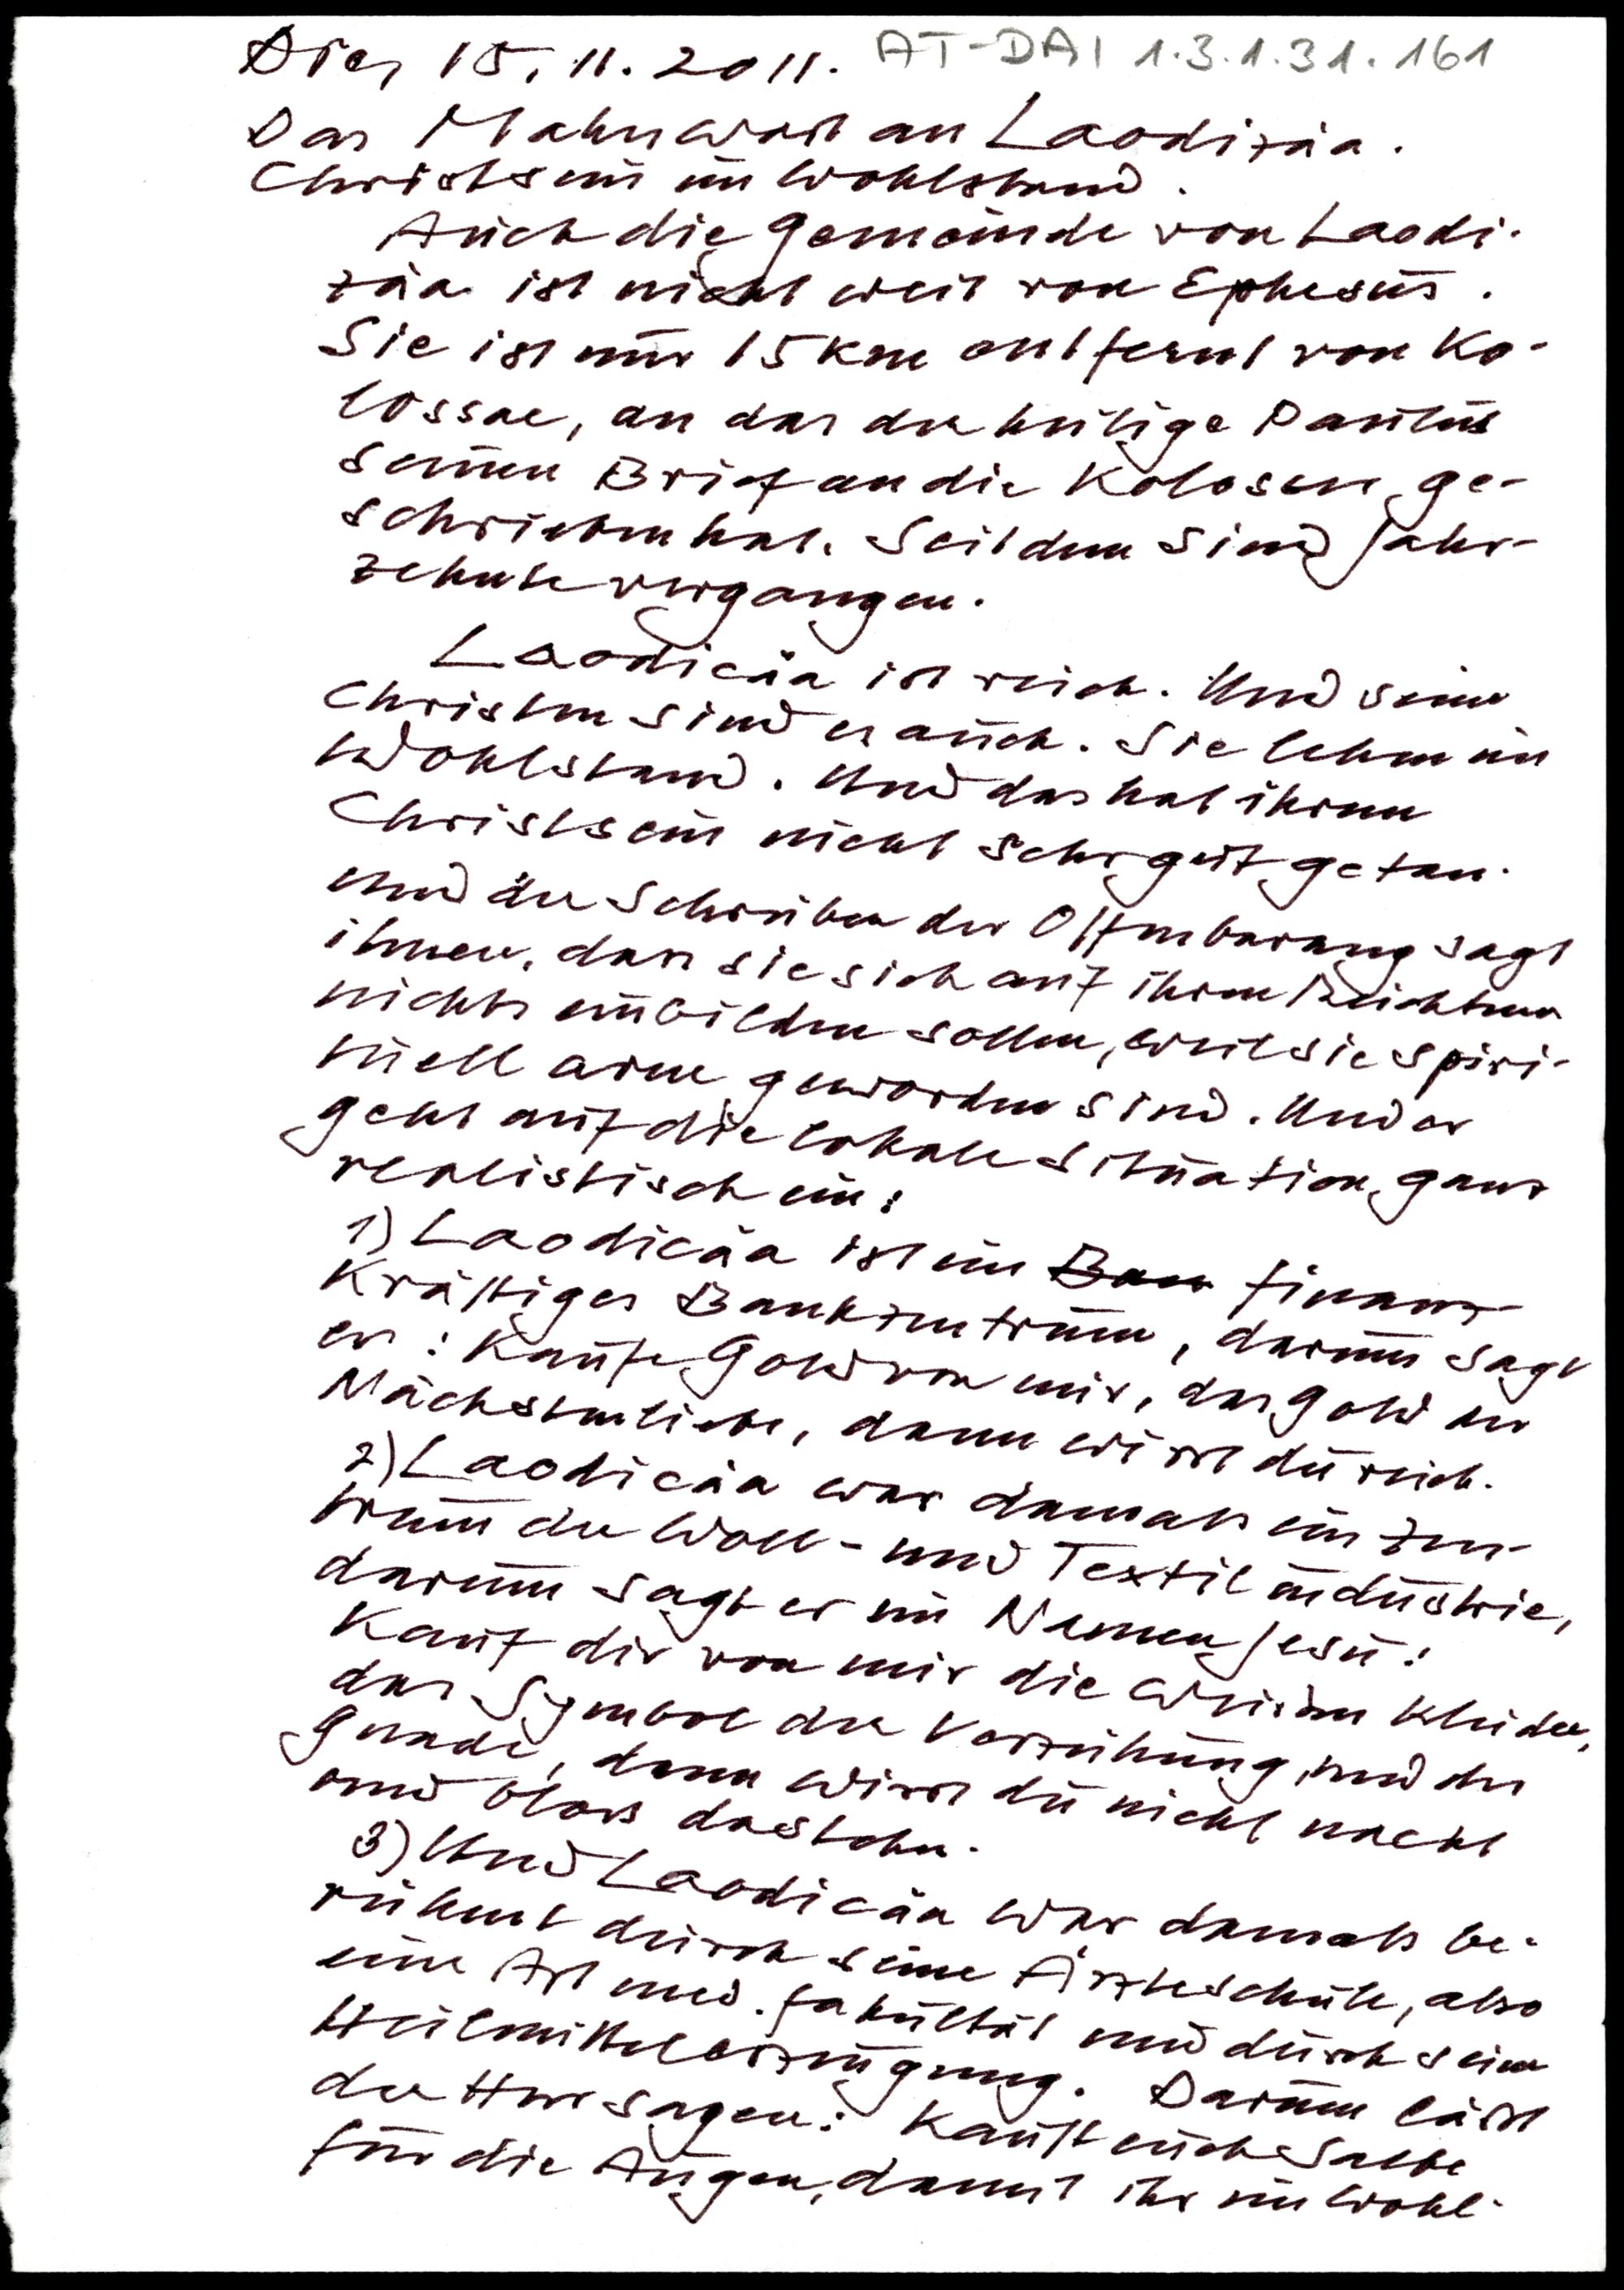 Die, 15. 11. 2011. AT-DAI 1.3.1.31.161
Das Mahnwort an Laodizäa.
Christsein im Wohlstand.
Auch die Gemeinde von Laodi-
zäa ist nicht weit von Ephesus.
Sie ist nur 15 km entfernt von Ko-
lossae, an das der heilige Paulus
seinen Brief an die Kolosser ge-
schrieben hat. Seitdem sind Jahr-
zehnte vergangen.
Laodicäa ist reich. Und seine
Christen sind es auch. Sie leben im
Wohlstand. Und das hat ihrem
Christsein nicht sehr gut getan.
Und der Schreiber der Offenbarung sagt
ihnen, dass sie sich auf ihren Reichtum
nichts einbilden sollen, weil sie spiri-
tuell arm geworden sind. Und er
geht auf die lokale Situation ganz
realistisch ein:
1) Laodicäa ist ein Ban finanz-
kräftiges Bankzentrum, darum sagt
er: Kaufe Gold von mir, das Gold der
Nächstenliebe, dann wirst du reich.
2) Laodicäa war damals ein Zen-
trum der Woll- und Textilindustrie,
darum sagt er im Namen Jesu:
Kauf dir von mir die weissen Kleider,
das Symbol der Verzeihung und der
Gnade, dann wirst du nicht nackt
und bloss dastehn.
3) Und Laodicäa war damals be-
rühmt durch seine Ärzteschule, also
eine Art med. Fakultät und durch seine
Heilmittelerzeugung. Darum lässt
der Herr sagen: Kauft euch Salbe
für die Augen, damit ihr im Wohl-